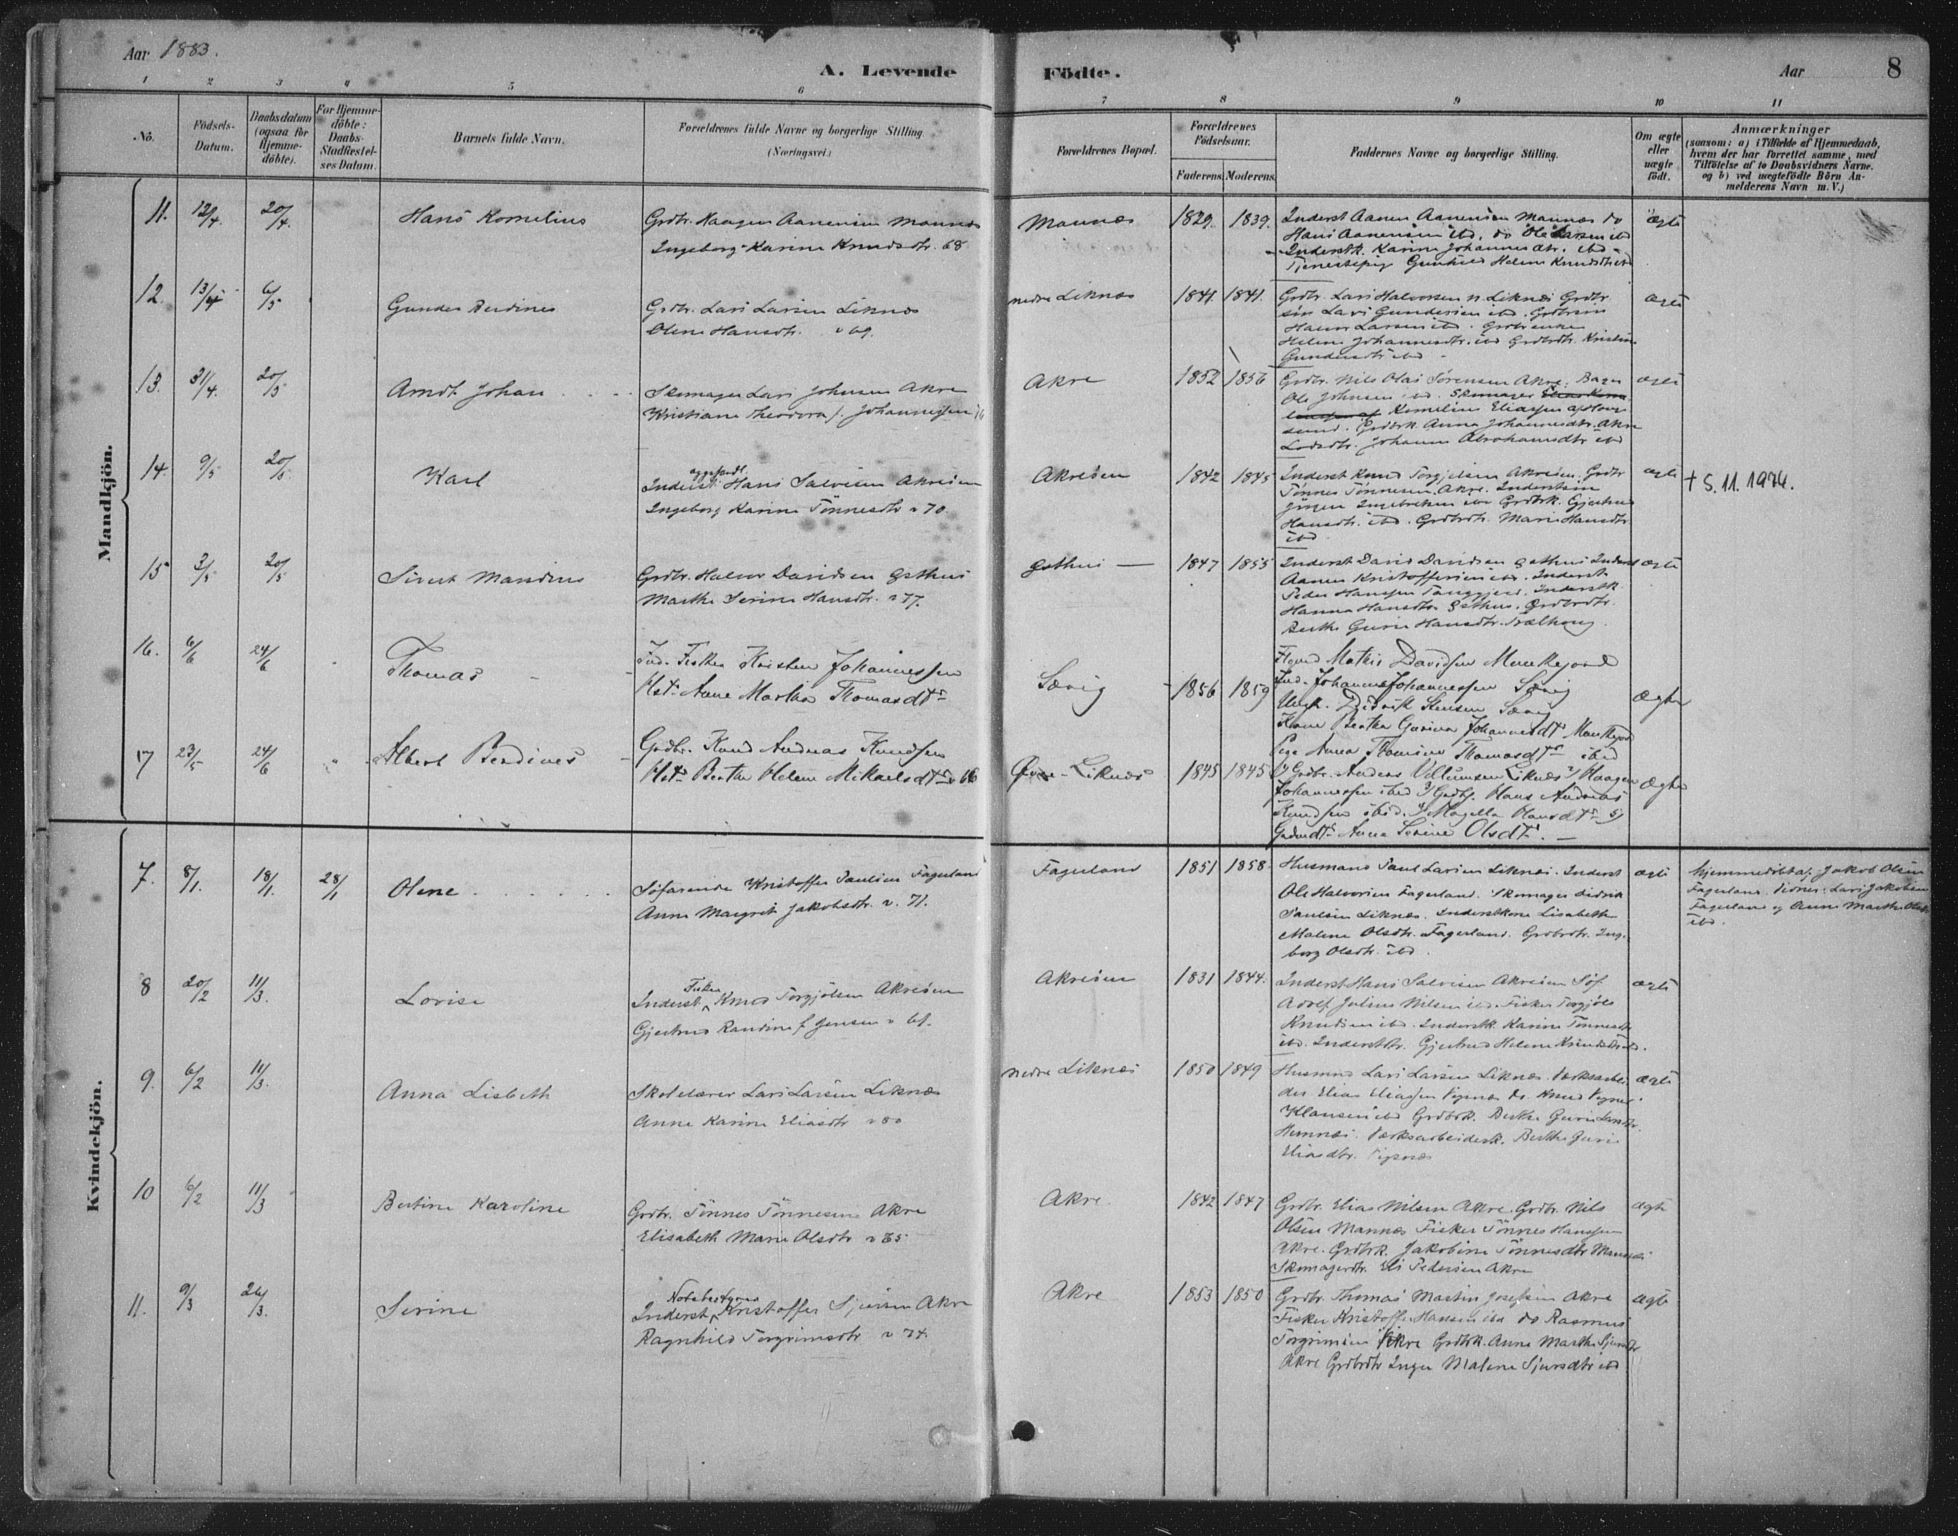 Aar 1883.
A. Levende
Födte.
Aar
8
1 2 3 4 5 6 7 8 9 10 11
No.
Födsels-
Datum.
Daabsdatum
(ogsaa for
Hjemme-
döbte).
For Hjemme-
döbte:
Daabs-
Stadfæstel-
ses Datum.
Barnets fulde Navn.
Forældrenes fulde Navne og borgerlige Stilling
(Næringsvei.)
Forældrenes Bopæl.
Forældrenes
Födselsaar.
Faderens.
Moderens.
Faddernes Navne og borgerlige Stilling.
Om ægte
eller
uægte
födt.
Anmærkninger
(saasom: a) i Tilfælde af Hjemmedaab,
hvem der har forrettet samme, med
Tilföielse af to Daabsvidners Navne.
og b) ved uægtefödte Börn An-
melderens Navn m. V.)
Mandkjön.
11. 12/4 20/4 Hans Kornelius
Grdbr. Haagen Aanensen Mannes
Ingeborg Karine Knudsdtr. 68
Mannes 1829. 1839.
Inderst Aanen Aanensen Mannes do
Hans Aanensen ibd. do Ole Larsen ibd
Inderstk. Karine Johannesdtr. ibd
Tjenestepig Gunhild Helene Knudsdtr ibd
ægte
12. 13/4 6/5 Gunder Berdines
Grdbr. Lars Larsen Liknes
Olene Hansdtr. 69.
nedre Liknes 1841. 1841.
Grdbr. Lars Halvorsen n. Liknes Grdbr
søn Lars Gundersen ibd. Grdbrsøn
Hans Larsen ibd. Grdbrenke
Helene Johannesdtr. ibd Grdbrdtr. Kristine
Gundersdtr ibd
ægte
13. 31/4. 20/5 Arndt Johan
Skomager Lars Johnsen Akre
Kristiane Theodora f. Johannessen
Akre 1852 1856
Grdbr. Nils Olai Sørensen Akre.
Ole Johnsen ibd. Skomager
Kornelius Eliassen
Grdbrk Anna Johannesdtr. Akre
Johanne Abrahamsdtr ibd
ægte
14. 9/5 20/5 Karl
Inderst Hans Salvesen Akreøen
Ingeborg Karine Tönnesdtr 70
Akreöen 1842 1845
Inderst Knud Torgjelsen Akreøen. Grdbr
Tønnes Tønnesen Akre. Inderstsøn
Jörgen Ingebretsen ibd Grdbrk. Gjertrud
Hansdtr. ibd. Grdbrdtr. Maren Hansdtr
ibd
ægte
† 5. 11. 1974.
15 3/5 20/5 Sivert Mandius
Grdbr. Halvor Davidsen Østhus
Marthe Serine Hansdtr. 77.
Østhus 1847 1855
Inderst David Davidsen Østhus Inderst
Aanen Kristoffersen ibd. Inderst
Peder Hansen Tangjerd. Inderstk
Hanna Hansdtr Østhus. Grdbrdtr.
Berthe Gurine Hansdtr.
ægte
16. 6/6 24/6 Thomas
Ind. Fisker Kristen Johannessen
Hst. Anne Martha Thomasdtr
Sævig 1856 1859
Mathis Davidsen Munkejord
Ind. Johannes Johannessen Sævig
Ungk. Didrik Stensen Sævig
Kone Berthe Gurine Johannesdtr Munkejord
Pige Anna Thomine Thomasdtr ibid
Ægte
17 23/5 24/6 Albert Berdines
Grdbr. Knud Andreas Knudsen
Hst Berthe Helene Mikaelsdtr 66
Øvre Liknes 1845 1845
1) Grdbr. Andreas Villumsen Liknes 2) Haagen
Johannessen ibid 3) Grdbr. Hans Andreas
Knudsen ibid. 4) Magella Hansdtr 5)
Gaardtr Anne Serine Olsdtr.
Ægte
Kvindekjön.
7. 8/1. 18/1. 28/1 Olene
Söfarende Kristoffer Paulsen Fagerland
Anne Margrete Jakobsdtr. 71.
Fagerland 1851 1858.
Husmand Paul Larsen Liknes. Inderst
Ole Halvorsen Fagerland. Skomager Didrik
Paulsen Liknes. Inderstkone Lisabeth
Malene Olsdtr. Fagerland. Grdbrdtr. Inge-
borg Olsdtr. ibd.
ægte
hjemmedöbt af Jakob Olsen
Fagerland. Vidner: Lars Jakobsen
Fagerland og Anne Marthe Olsdtr
ibd.
8 20/2 11/3. Lovise
Inderst Fisker Knud Torgjelsen Akreöen
Gjertrud Randine f. Jensen 61.
Akreöen 1831 1844.
Inderst Hans Salvesen Akreöen Söf
Adolf Julius Nilsen ibd. Fisker Torgjels
Knudsen ibd. Inderstk Karine Tönnesdtr
ibd. Inderstdtr. Gjertrud Helene Knudsdtr ibd.
ægte
9. 6/2 11/3. Anna Lisbeth
Skolelærer Lars Larsen Liknes
Anne Karine Eliasdtr 80
nedre Liknes 1850 1849
Husmand Lars Larsen Liknes. Værksarbei
der Elias Eliassen Vigsnæs do. Knud
Klausen ibd Grdbrk. Berthe Gurine Larsdtr.
Hemnes. Værksarbeiderk. Berthe Gurine
Eliasdtr. Vigsnæs
ægte
10 6/2 11/3 Bertine Karoline
Grdbr. Tönnes Tönnesen Akre
Elisabeth Marie Olsdtr 65
Akre. 1842 1847
Grdbr. Elias Nilsen Akre. Grdbr. Nils
Olsen Mannes Fisker Tönnes Hansen
Akre. Grdbrk. Jakobine Tönnesdtr Mannes
Skomagerdtr. Eli Pedersen Akre
ægte
11. 9/3 26/3. Serine
Inderst Notebestyrer Kristoffer Sjursen Akre
Ragnhild Torgrimsdtr 74.
Akre 1853 1850
Grdbr. Thomas Martin Josefsen Akre
Fisker Kristoffer Hansen ibd do Rasmus
Torgrimsen Akre Grdbrk. Anne Marthe Sjursdtr
Akre Grdbrdtr Inger Malene Sjursdtr ibd
ægte